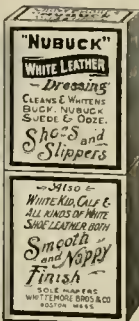 "NUBUCK"
WHITE LEATHER
Dressing
CLEANS & WHITENS
BUCK, NUBUCK
SUEDE & OOZE.
Shoes and
Slippers
Also
WHITE KID, CALF &
ALL KINDS OF WHITE
SHOE LEATHER BOTH
Smooth
and Nappy
Finish
SOLE MAKERS
WHITTEMORE BROS & CO
BOSTON MASS